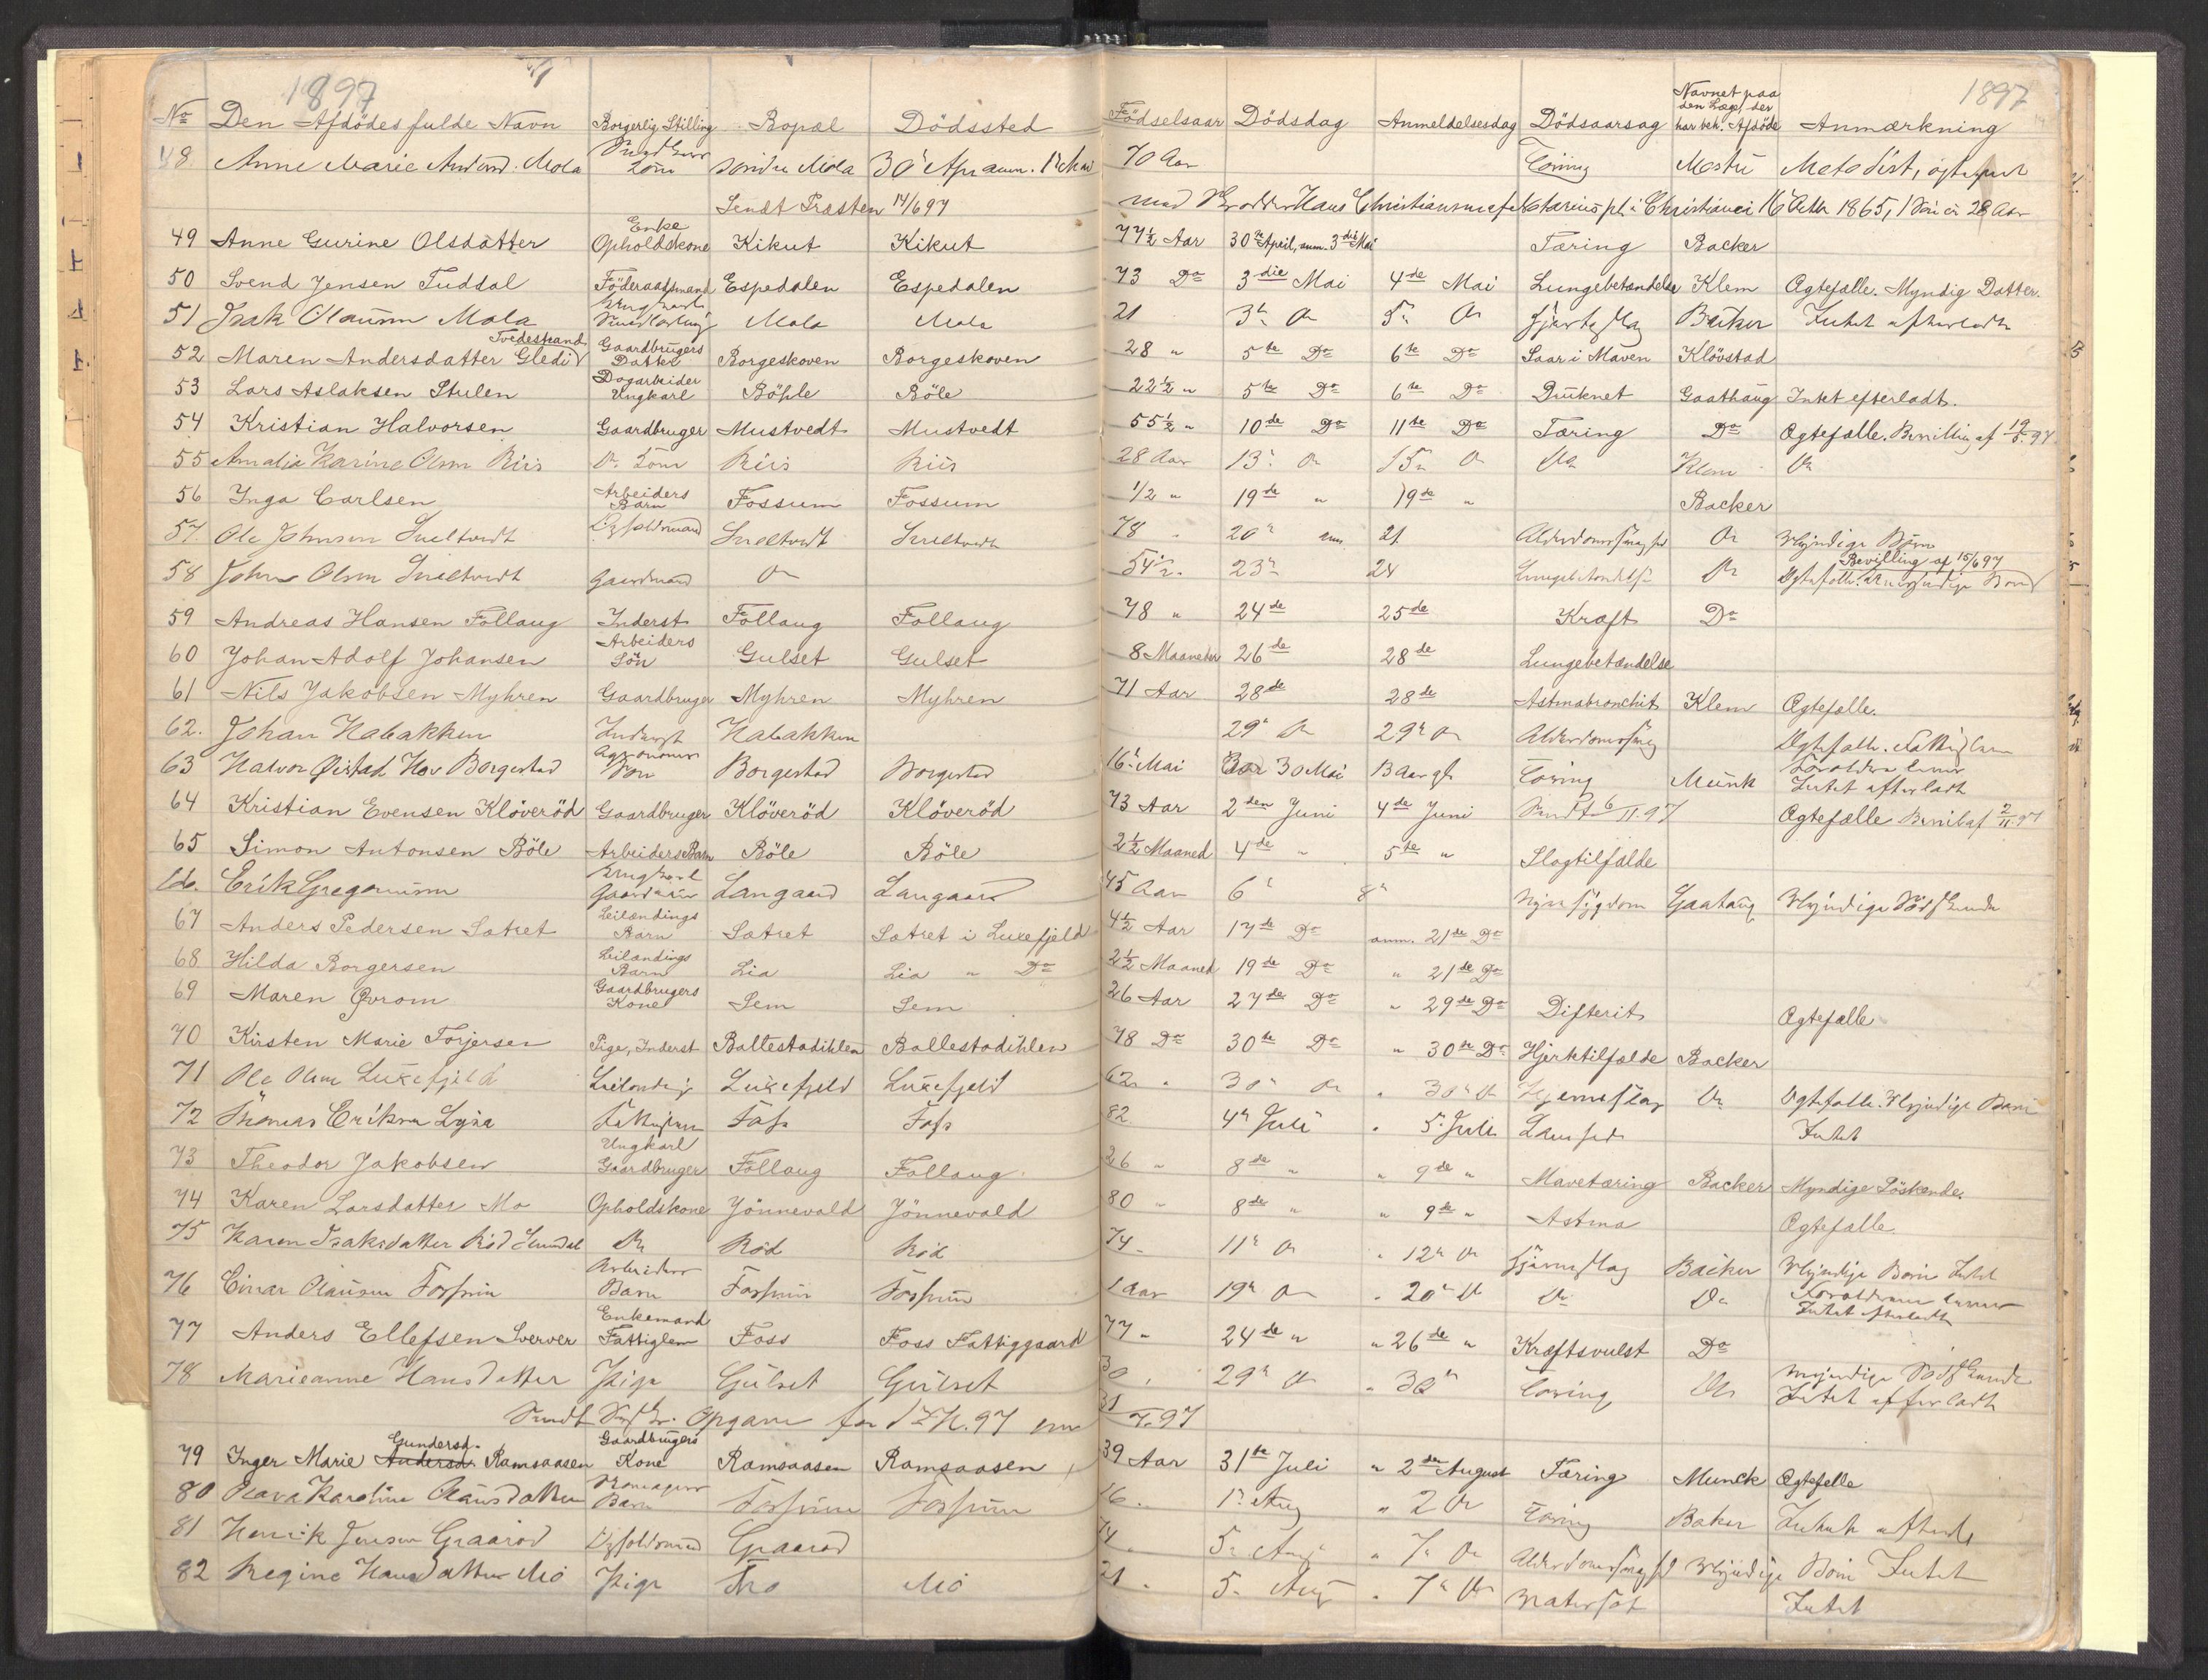 1897 1897
No Den Afdödes fulde Navn Borgerlig Stilling Bopæl Dödssted Födselsaar Dödsdag Anmeldelsesdag Dödsaarsag Navnet paa den Læge, der har beh. Afdöde Anmærkning
48. Anne Marie Mola Kone Mola 30 Apr anm. 70 Aar Tæring Metodist, ægtefæl
Sendt Præsten 14/6 97 med Hans i Christiania 16 1865, 1 28 Aar
49 Anne Gurine Olsdatter Enke Opholdskone Kikut Kikut 77½ Aar 30te April, anm. 3die Mai Tæring Backer
50 Svend Jensen Tudsal Föderaadsmand Espedalen Espedalen 73 Do 3die Mai 4de Mai Lungebetændelse Klem Ægtefælle. Myndig Datter.
51 Isak Olausen Mola Ungkarl Mola Mola 21 3 Do 5 Do Hjerteslag Backer Intet efterladt
52 Maren Andersdatter Gledi Tvedestrand Gaardbrugers Datter Borgeskoven Borgeskoven 28 " 5te Do 6te Do Saar i Maven Klövstad
53 Lars Aslaksen Stulen Dagarbeider Ungkarl Böhle Böle 22½ " 5te Do 6te Do Druknet Gaathaug Intet efterladt.
54 Kristian Halvorsen Gaardbruger Mustvedt Mustvedt 55½ " 10de Do 11te Do Tæring Do Ægtefælle. Bevilling af 19/5. 97
55 Amalia Karine Olsen Riis Do Kone Riis Riis 28 Aar 13 Do 15 Do Do Klem Do
56 Inga Carlsen Arbeiders Barn Fossum Fossum 1/2 " 19de " 19de " Backer
57. Ole Johnsen Sneltvedt Opholdsmand Sneltvedt Sneltvedt 78 20 anm 21 Alderdomssvaghed Do Myndige Börn
58 John Olsen Sneltvedt Gaardmand Do 54½ 23 24 Lungebetændelse Do Bevilling af 15/6 97 Ægtefælle. Börn
59 Andreas Hansen Follaug Inderst Follaug Follaug 78 " 24de 25de Kræft Do
60 Johan Adolf Johansen Arbeiders Sön Gulset Gulset 8 Maaneder 26de 28de Lungebetændelse
61 Nils Jakobsen Myhren Gaardbruger Myhren Myhren 71 Aar 28de 28de Astmabronchit Klem Ægtefælle.
62. Johan Habakken Inderst Habakken 29 Do 29 Do Alderdomssvag Ægtefælle. Fattiglem
63 Halvor Borgestad Agronoms Sön Borgestad Borgestad 16 Mai 30 Mai 3 Aar gl. Tæring Munk Forældre lever Intet efterladt
64 Kristian Evensen Klöveröd Gaardbruger Klöveröd Klöveröd 73 Aar 2den Juni 4de Juni Sendt 6/II.97 Ægtefælle Bevil af 2/II.97
65 Simon Antonsen Böle Arbeiders Barn Böle Böle 2½ Maaned 4de " 5te " Slagtilfælde
66. Erik Gregoriusen Ungkarl Langaard Langaard 45 Aar 6 8 Nyresygdom Gaathaug Myndige Södskende
67 Anders Pedersen Satret Leilændings Barn Satret Satret i Luxefjeld 4½ Aar 17de Do anm. 21de Do
68 Hilda Borgersen Leilændings Barn Lia Lia " Do 2½ Maaned 19de Do " 21de Do
69 Maren Qvrom Gaardbrugers Kone Sem Sem 26 Aar 27de Do " 29de Do Difterit Ægtefælle
70 Kirsten Marie Torjersen Pige, Inderst Ballestadihlen Ballestadihlen 78 Do 30te Do " 30te Do Hjertetilfælde Backer
71 Ole Olsen Luxefjeld Leilænding Luxefjeld Luxefjeld 62 " 30 Do " 30 Do Hjerneslag Do Ægtefælle. Myndige Börn
72 Thomas Eriksen Lysa Fattiglem Foss Foss 82 4 Juli " 5 Juli Intet
73 Theodor Jakobsen Ungkarl Gaardbruger Follaug Follaug 26 " 8de " " 9de " Mavetæring Backer Myndige Söskende.
74 Karen Larsdatter Mo Opholdskone Jönnevald Jönnevald 80 " 8de " " 9de " Astma Ægtefælle
75 Karen Isaksdatter Röd Do Röd Röd 74 " 11 Do " 12 Do Hjerneslag Backer Myndige Börn Intet
76 Einar Olausen Fossum Arbeiders Barn Fossum Fossum 1 Aar 19 Do " 20 Do Do Do Forældrene lever Intet efterladt
77 Anders Ellefsen Sverver Enkemand Fattiglem Foss Foss Fattiggaard 77 " 24de " " 26de " Kræftsvulst Do
78 Marieanne Hansdatter Pige Gulset Gulset 30 " 29 Do " 30 Tæring Do Myndige Södskende Intet efterladt
Sendt Opgave for 97 31/7.97
79 Inger Marie Gundersd. Andersd. Ramsaasen Gaardbrugers Kone Ramsaasen Ramsaasen 39 Aar 31te Juli " 2den August Tæring Munck Ægtefelle
80 Olava Karoline Olausdatter Barn Fossum Fossum 16 " 1 Aug " 2 Do Tæring Baker Intet
81 Henrik Jensen Graaröd Opholdsmand Graaröd 74 " 5 Aug " 7 Do Alderdomssvaghed Myndige Börn Intet
82 Regine Hansdatter Mo Pige Mo Mo 21 " 5 Aug " 7 Do Intet